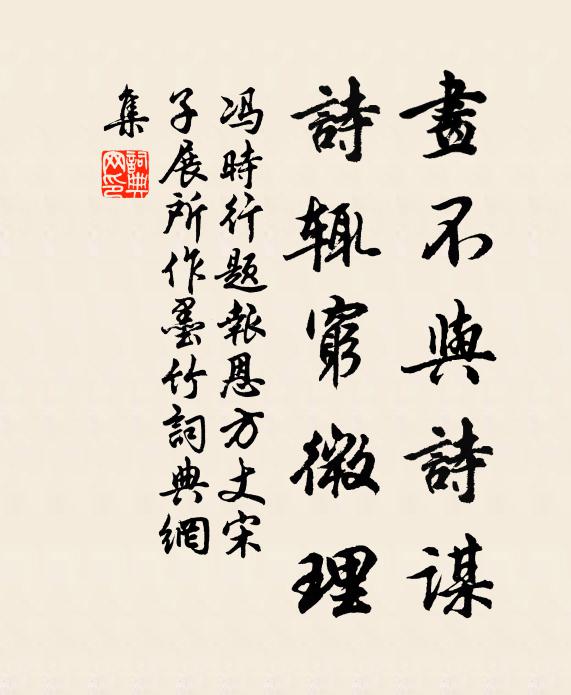 畫不與詩謀
詩辄窮微理
冯時行题報恩方丈宋
子展所作墨竹詞典網
集
詞典
网印